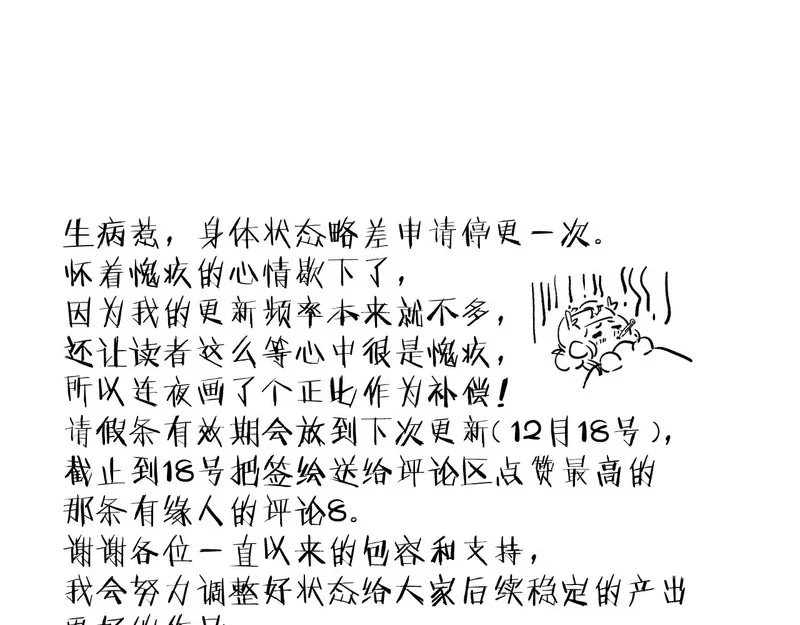 生病惹，身体状态略差申请停更一次。
怀着愧疚的心情歇下了，
因为我的更新频率本来就不多，
还让读者这么等心中很是愧疚，
所以连夜画了个正比作为补偿！
请假条有效期会放到下次更新（12月18号），
截止到18号把签绘送给评论区点赞最高的
那条有缘人的评论8。
谢谢各位一直以来的包容和支持，
我会努力调整好状态给大家后续稳定的产出